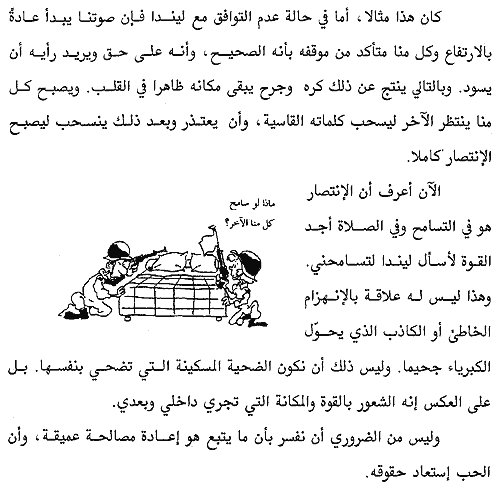 كان هذا مثالا، أما في حالة عدم التوافق مع ليندا فإن صوتنا يبدأ عادةً
بالارتفاع وكل منا متأكد من موقفه بأنه الصحيح، وأنه على حق ويريد رأيه أن
يسود. وبالتالي ينتج عن ذلك كره وجرح يبقى مكانه ظاهرا في القلب. ويصبح كل
منا ينتظر الآخر ليسحب كلماته القاسية، وأن يعتذر وبعد ذلك ينسحب ليصبح
الإنتصار كاملا.
الآن أعرف أن الإنتصار
هو في التسامح وفي الصلاة أجد
القوة لأسأل ليندا لتسامحني.
وهذا ليس له علاقة بالإنهزام
الخاطئ أو الكاذب الذي يحوّل
ماذا لو سامح
كل منا الآخر؟
الكبرياء جحيما. وليس ذلك أن نكون الضحية المسكينة التي تضحي بنفسها. بل
على العكس إنه الشعور بالقوة والمكانة التي تجري داخلي وبعدي.
وليس من الضروري أن نفسر بأن ما يتبع هو إعادة مصالحة عميقة، وأن
الحب إستعاد حقوقه.